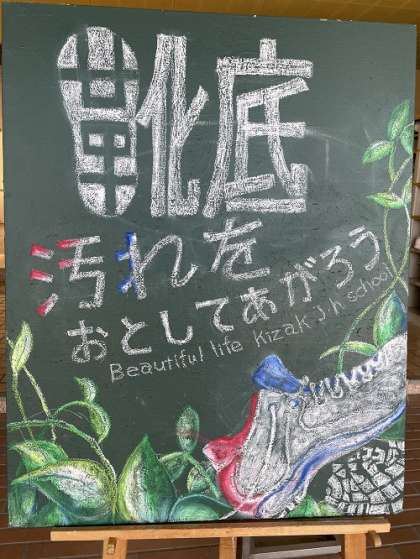 靴底
汚れを
おとしてあがろう
Beautiful life Kizak J h school